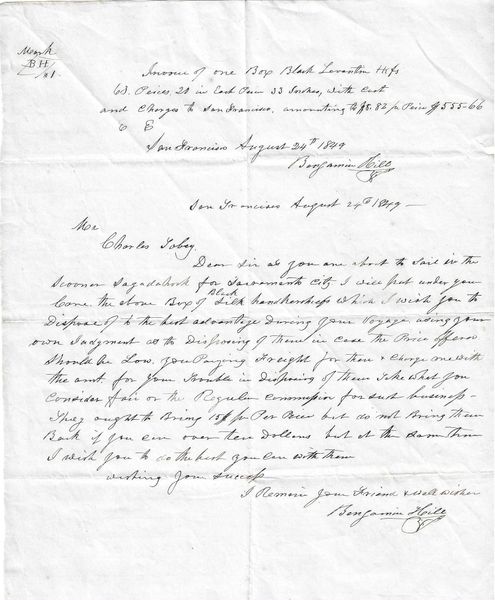 Mark
BH
N 1
Invoice of one Box Black Levantin Hkfs
63 Peices 20 in Each Peice 33 Inches, with Cost
and Charges to San Francisco, amounting to $8.82 pr Peice $555-66
E E
San Francisco August 24th 1849
Benjamin Hill
San Francisco August 24th 1849 -
Mr
Charles Tobey
Dear Sir as you are about to Sail in the
Scooner Sagadahock for Sacramento City I will put under you
Black
Care the above Box of Silk handkercheifs which I wish you to
Dispose of to the best advantage During your Voyage, using your
own Judgment as to Disposing of them in case the Price offered
Should be Low, you Paying Freight for them & Charge me with
the amt. for your Trouble in Disposing of them Take what you
Consider fair or the Regular Commission for such business -
They ought to Bring 15$ pr Peice but do not Bring them
Back if you can over ten Dollars but at the same time
I wish you to do the best you can with them
wishing you success
I Remain your Friend & well wisher
Benjamin Hill